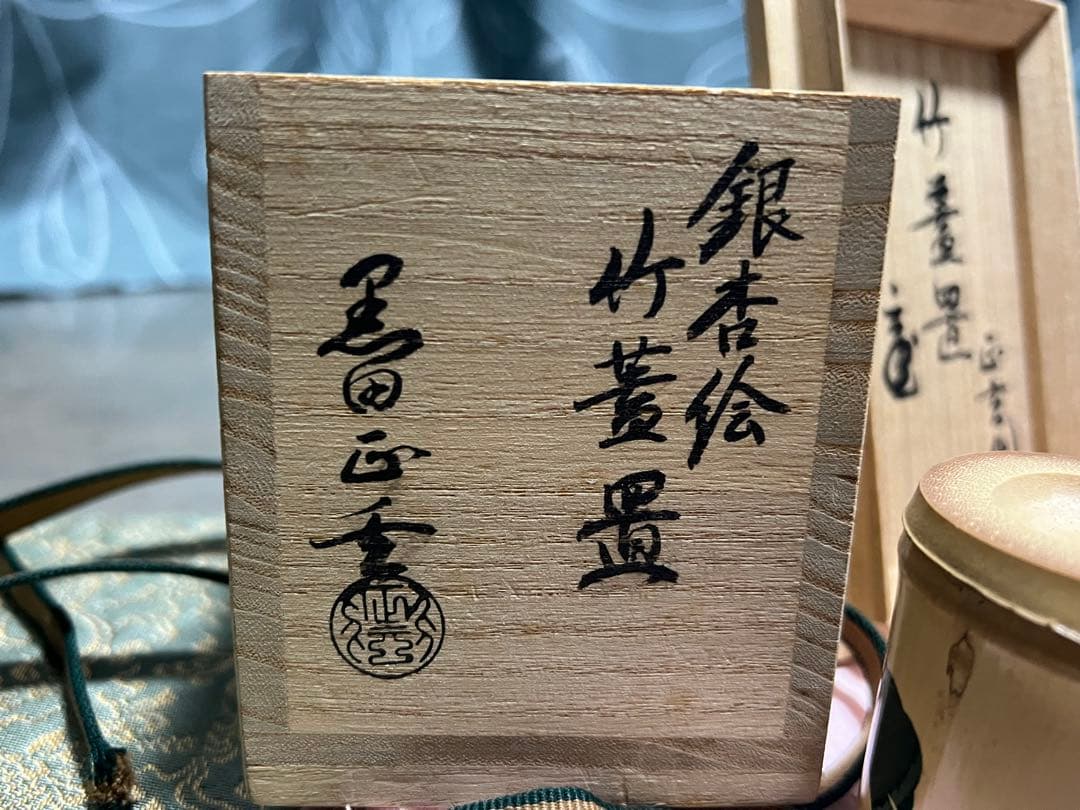 銀杏絵
竹蓋置
黒田正玄
竹蓋置
正玄